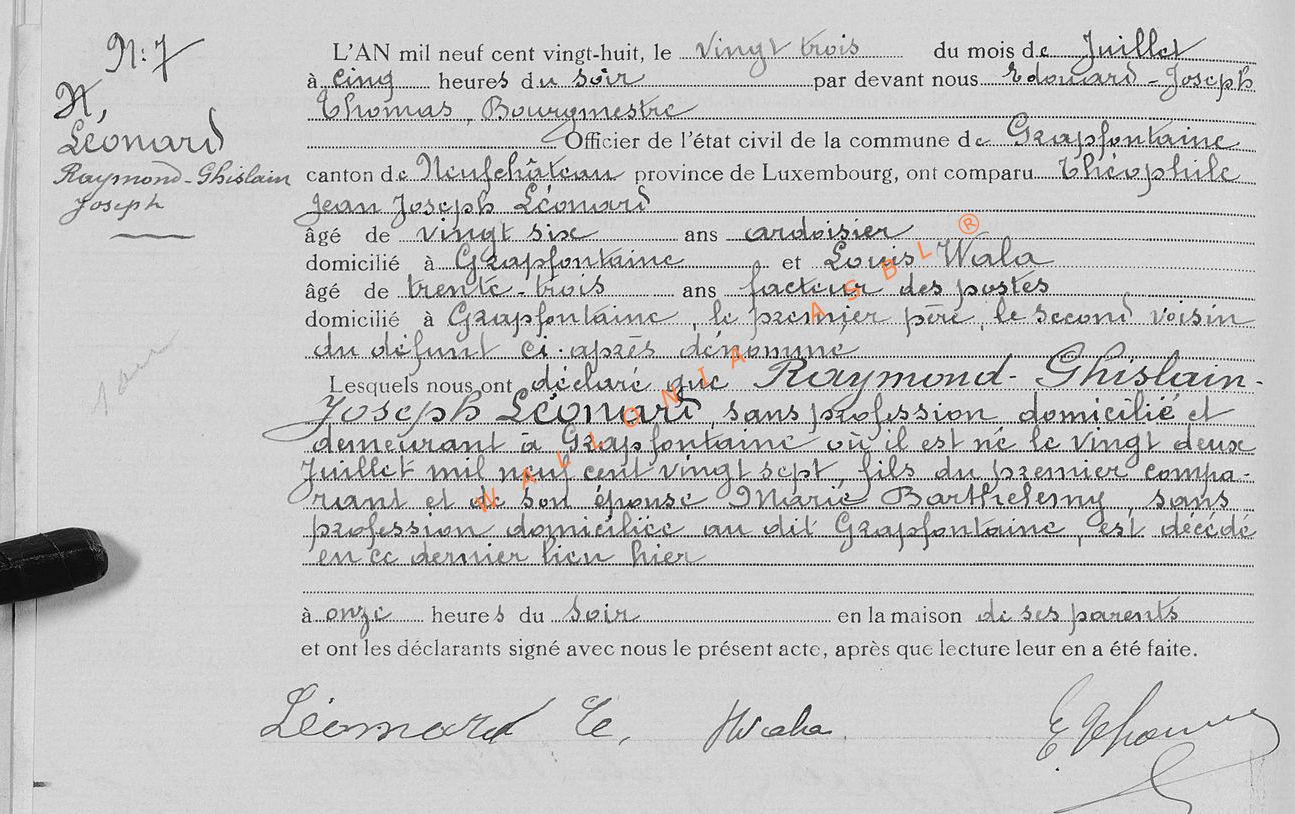 N: 7
N,
Léonard
Raymond-Ghislain
Joseph
1 an
L'AN mil neuf cent vingt-huit, le vingt trois du mois de Juillet
à cinq heures du soir par devant nous Edouard-Joseph
Thomas, Bourgmestre
Officier de l'état civil de la commune de Grapfontaine
canton de Neufchâteau province de Luxembourg, ont comparu Théophile
Jean Joseph Léonard
âgé de vingt six ans ardoisier
domicilié à Grapfontaine et Louis Wala
âgé de trente-trois ans facteur des postes
domicilié à Grapfontaine, le premier père, le second voisin
du défunt ci-après dénommé
Lesquels nous ont déclaré que Raymond-Ghislain-
Joseph Léonard, sans profession domicilié et
demeurant à Grapfontaine où il est né le vingt deux
Juillet mil neuf cent vingt sept, fils du premier compa-
rant et de son épouse Marie Barthelemy, sans
profession domiciliée au dit Grapfontaine, est décédé
en ce dernier lieu hier
à onze heures du soir en la maison de ses parents
et ont les déclarants signé avec nous le présent acte, après que lecture leur en a été faite.
Léonard Te. Wala E. Thomas
WALLONIA ASBL ®